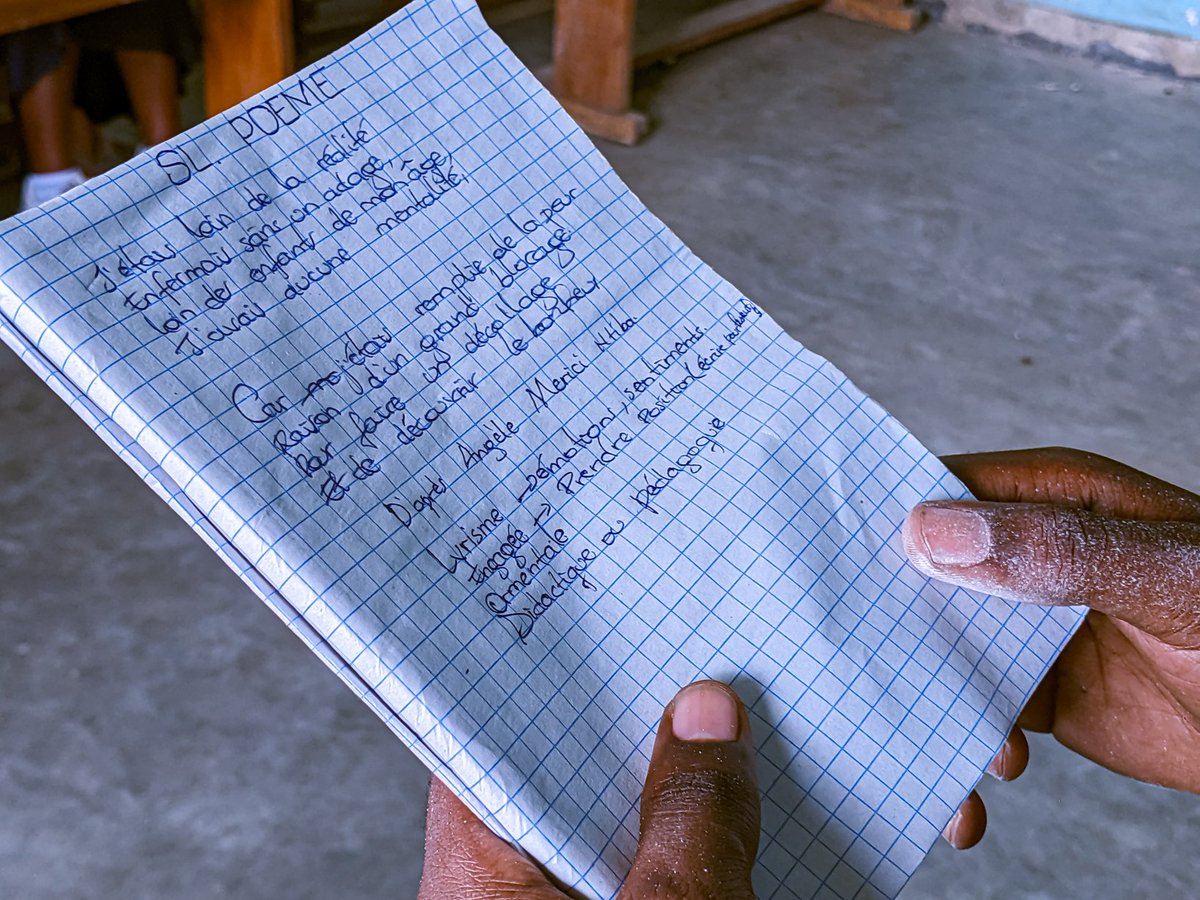 SL. POEME
J'étais loin de la réalité
Enfermais sans un adage,
loin des enfants de mon âge,
J'avais aucune mentalité,
Car moi j'étais remplie de la peur
Raison d'un grand blocage
Pour faire un décollage
Et de découvrir le bonheur,
D'après Angèle Merici Ntiba.
Lyrisme → émotions, sentiments.
Engagée → Prendre position (écrit
Ornentale
Didactique ou pédagogue